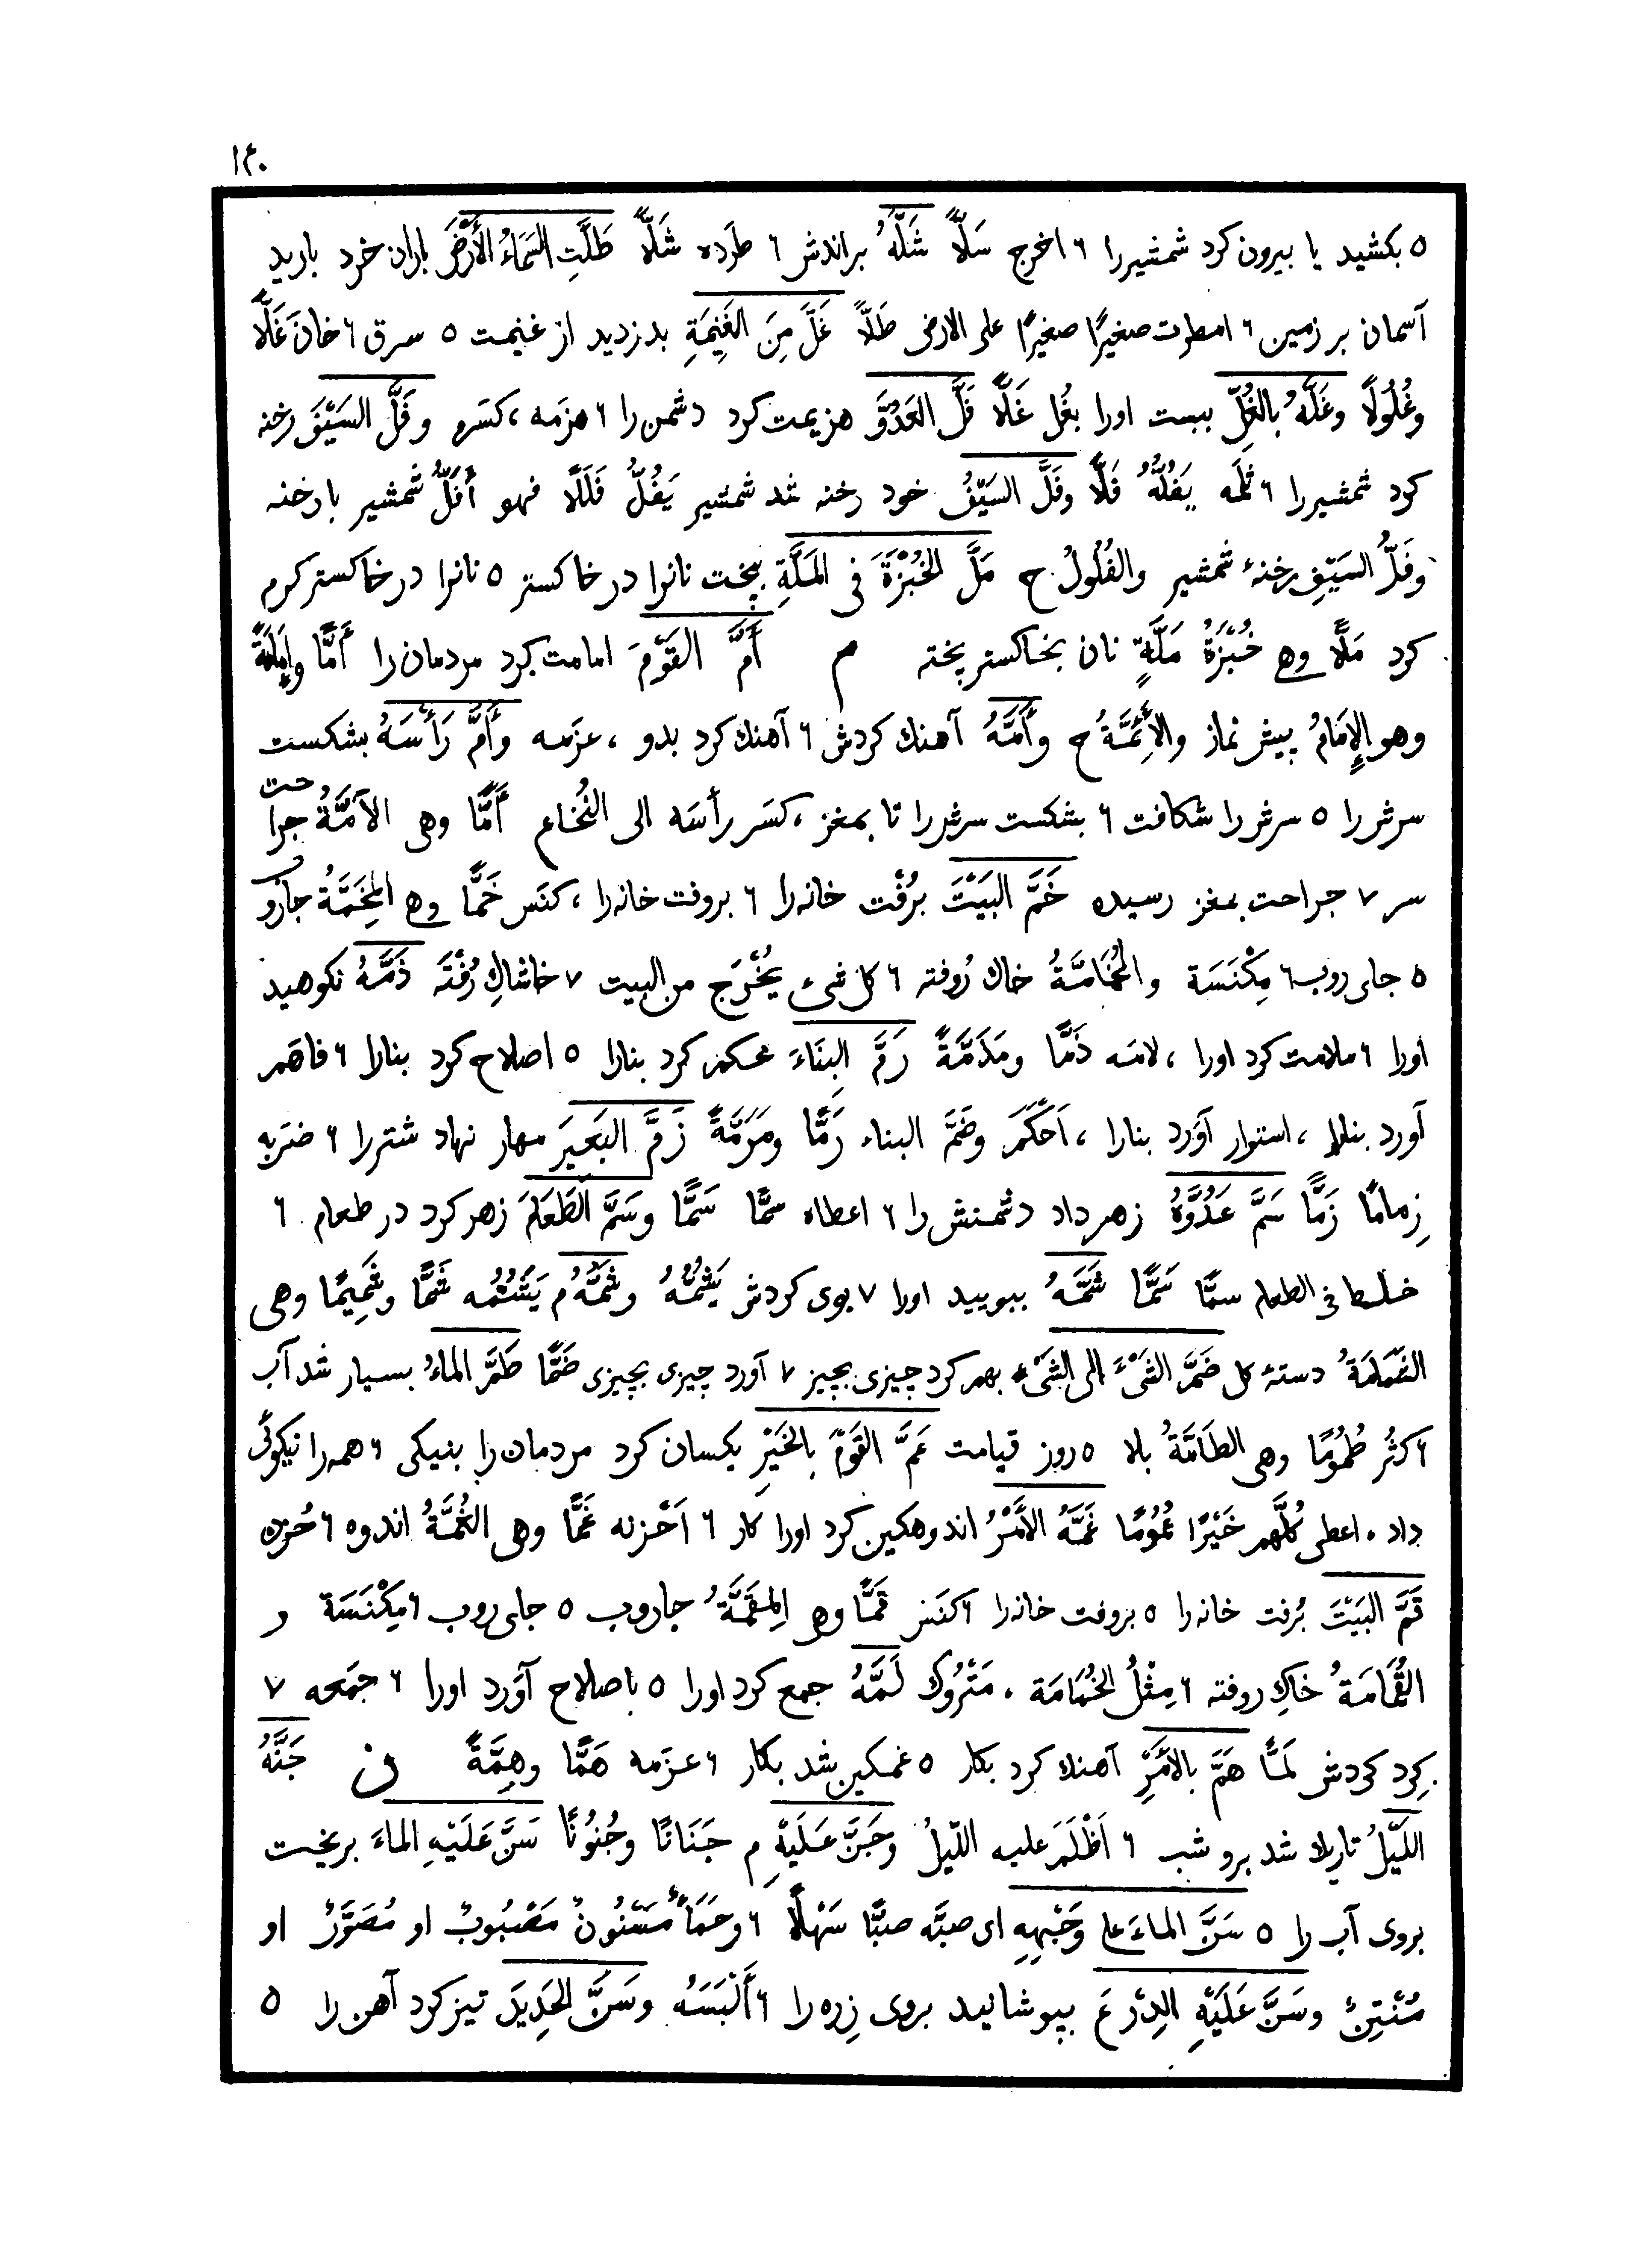 ۱۴۰
۵ بكشيد يا بيرون كرد شمشيررا ۶ اخرج سَلًّا شَلَّهُ براندش ۶ طَرَده شَلًّا طَلَّتِ السَّمَاءُ الأَرْضَ باران خرد باريد
آسمان بر زمين ۶ امطرت صغيرًا صغيرًا على الارض طَلًّا غَلَّ مِنَ الغَنِيمَةِ بدزديد از غنيمت ۵ سرق ۶ خانَ غَلًّا
وغُلُولًا وغَلَّهُ بالغُلِّ ببست اورا بغُل غَلًّا فَلَّ العَدُوَّ هزيمت كرد دشمن را ۶ هزمه ، كسَره وفَلَّ السَّيْفَ رخنه
كرد شمشيررا ۶ ثلمَه يَفُلُّهُ فَلًّا وفَلَّ السَّيْفُ خود رخنه شد شمشير يَفُلُّ فَلَلًا فهو أَفَلُّ شمشير با رخنه
وفَلُّ السَّيْفِ رخنهٔ شمشير والفُلُولُ ح مَلَّ الخُبْزَةَ فى المَلَّةِ بپخت نانرا در خاكستر ۵ نانرا در خاكستر كرم
كرد مَلًّا وهى خُبْزَةُ مَلَّةٍ نان بخاكستر پخته م أَمَّ القَوْمَ امامت كرد مردمان را أَمًّا وإِمَامَةً
وهو الإِمَامُ پيش نماز والأَئِمَّةُ ح وأَمَّهُ آهنك كردش ۶ آهنك كرد بدو ، عزَمه وأَمَّ رَأْسَهُ بشكست
سرش را ۵ سرش را شكافت ۶ بشكست سرش را تا بمغز ، كسَر رأسَه الى النُخاع أَمًّا وهى الآمَّةُ جراحت
سر ۷ جراحت بمغز رسيده خَمَّ البَيْتَ بُرُفت خانه را ۶ بروفت خانه را ، كنَس خَمًّا وهى المِخَمَّةُ جاروب
۵ جاى روب ۶ مِكْنَسَة والخُمَامَةُ خاك رُوفته ۶ كل شىء يُخْرَج من البيت ۷ خاشاكِ رُفْتَه ذَمَّهُ نكوهيد
اورا ۶ ملامت كرد اورا ، لامَه ذَمًّا ومَذَمَّةً رَمَّ البِنَاءَ محكم كرد بنارا ۵ اصلاح كرد بنارا ۶ فاهَم
آورد بنارا ، استوار آوَرد بنارا ، اَحْكَمَ وضَمَّ البناء رَمًّا ومَرَمَّةً زَمَّ البَعِيرَ مهار نهاد شتررا ۶ ضرَبه
زِمامًا زَمًّا سَمَّ عَدُوَّهُ زهر داد دشمنش را ۶ اعطاه سمًّا سَمًّا وسَمَّ الطَّعَامَ زهر كرد در طعام ۶
خلط فى الطعام سمًّا سَمًّا شَمَّهُ ببوييد اورا ۷ بوى كردش يَشُمُّهُ وشَمَّهُ م يَشْتُمُه شَمًّا وشَمِيمًا وهى
الشَّمَامَةُ دستهٔ كل ضَمَّ الشَّىْءَ الى الشَّىْءِ بهم كرد چيزى بچيز ۷ آورد چيزى بچيزى ضَمًّا طَمَّ الماءُ بسيار شد آب
۶ كثُر طُمُومًا وهى الطَامَّةُ بلا ۵ روز قيامت عَمَّ القَوْمَ بالخَيْرِ يكسان كرد مردمان را بنيكى ۶ همه را نيكوئى
داد ، اعطى كُلَّهم خَيْرًا عُمُومًا غَمَّهُ الأَمْرُ اندوهكين كرد اورا كار ۶ اَحْزنه غَمًّا وهى الغُمَّةُ اندوه ۶ حُزن
قَمَّ البَيْتَ بُرفت خانه را ۵ بروفت خانه را ۶ كنَس قَمًّا وهى المِقَمَّةُ جاروب ۵ جاى روب ۶ مِكْنَسَة و
القُمَامَةُ خاكِ روفته ۶ مِثْلُ الخُمَامَة ، مَتْرُوك لَمَّهُ جمع كرد اورا ۵ باصلاح آوَرد اورا ۶ جمَعه ۷
كِرد كردش لَمًّا هَمَّ بالأَمْرِ آهنك كرد بكار ۵ غمكين شد بكار ۶ عزَمه هَمًّا وهِمَّةً ن جَنَّهُ
اللَّيْلُ تاريك شد برو شب ۶ اَظْلَمَ عليه الليلُ وجَنَّ عَلَيْهِ م جَنَانًا وجُنُونًا سَنَّ عَلَيْهِ الماءَ بريخت
بروى آب را ۵ سَنَّ الماءَ على وَجْهِهِ اى صبَّه صبًّا سَهْلًا ۶ وحَمَأٌ مَسْنُونٌ مَصْبُوبٌ او مُصَوَّرٌ او
مُنْتِنٌ وسَنَّ عَلَيْهِ الدِّرْعَ بپوشانيد بروى زِره را ۶ أَلْبَسَهُ وسَنَّ الحَدِيدَ تيز كرد آهن را ۵